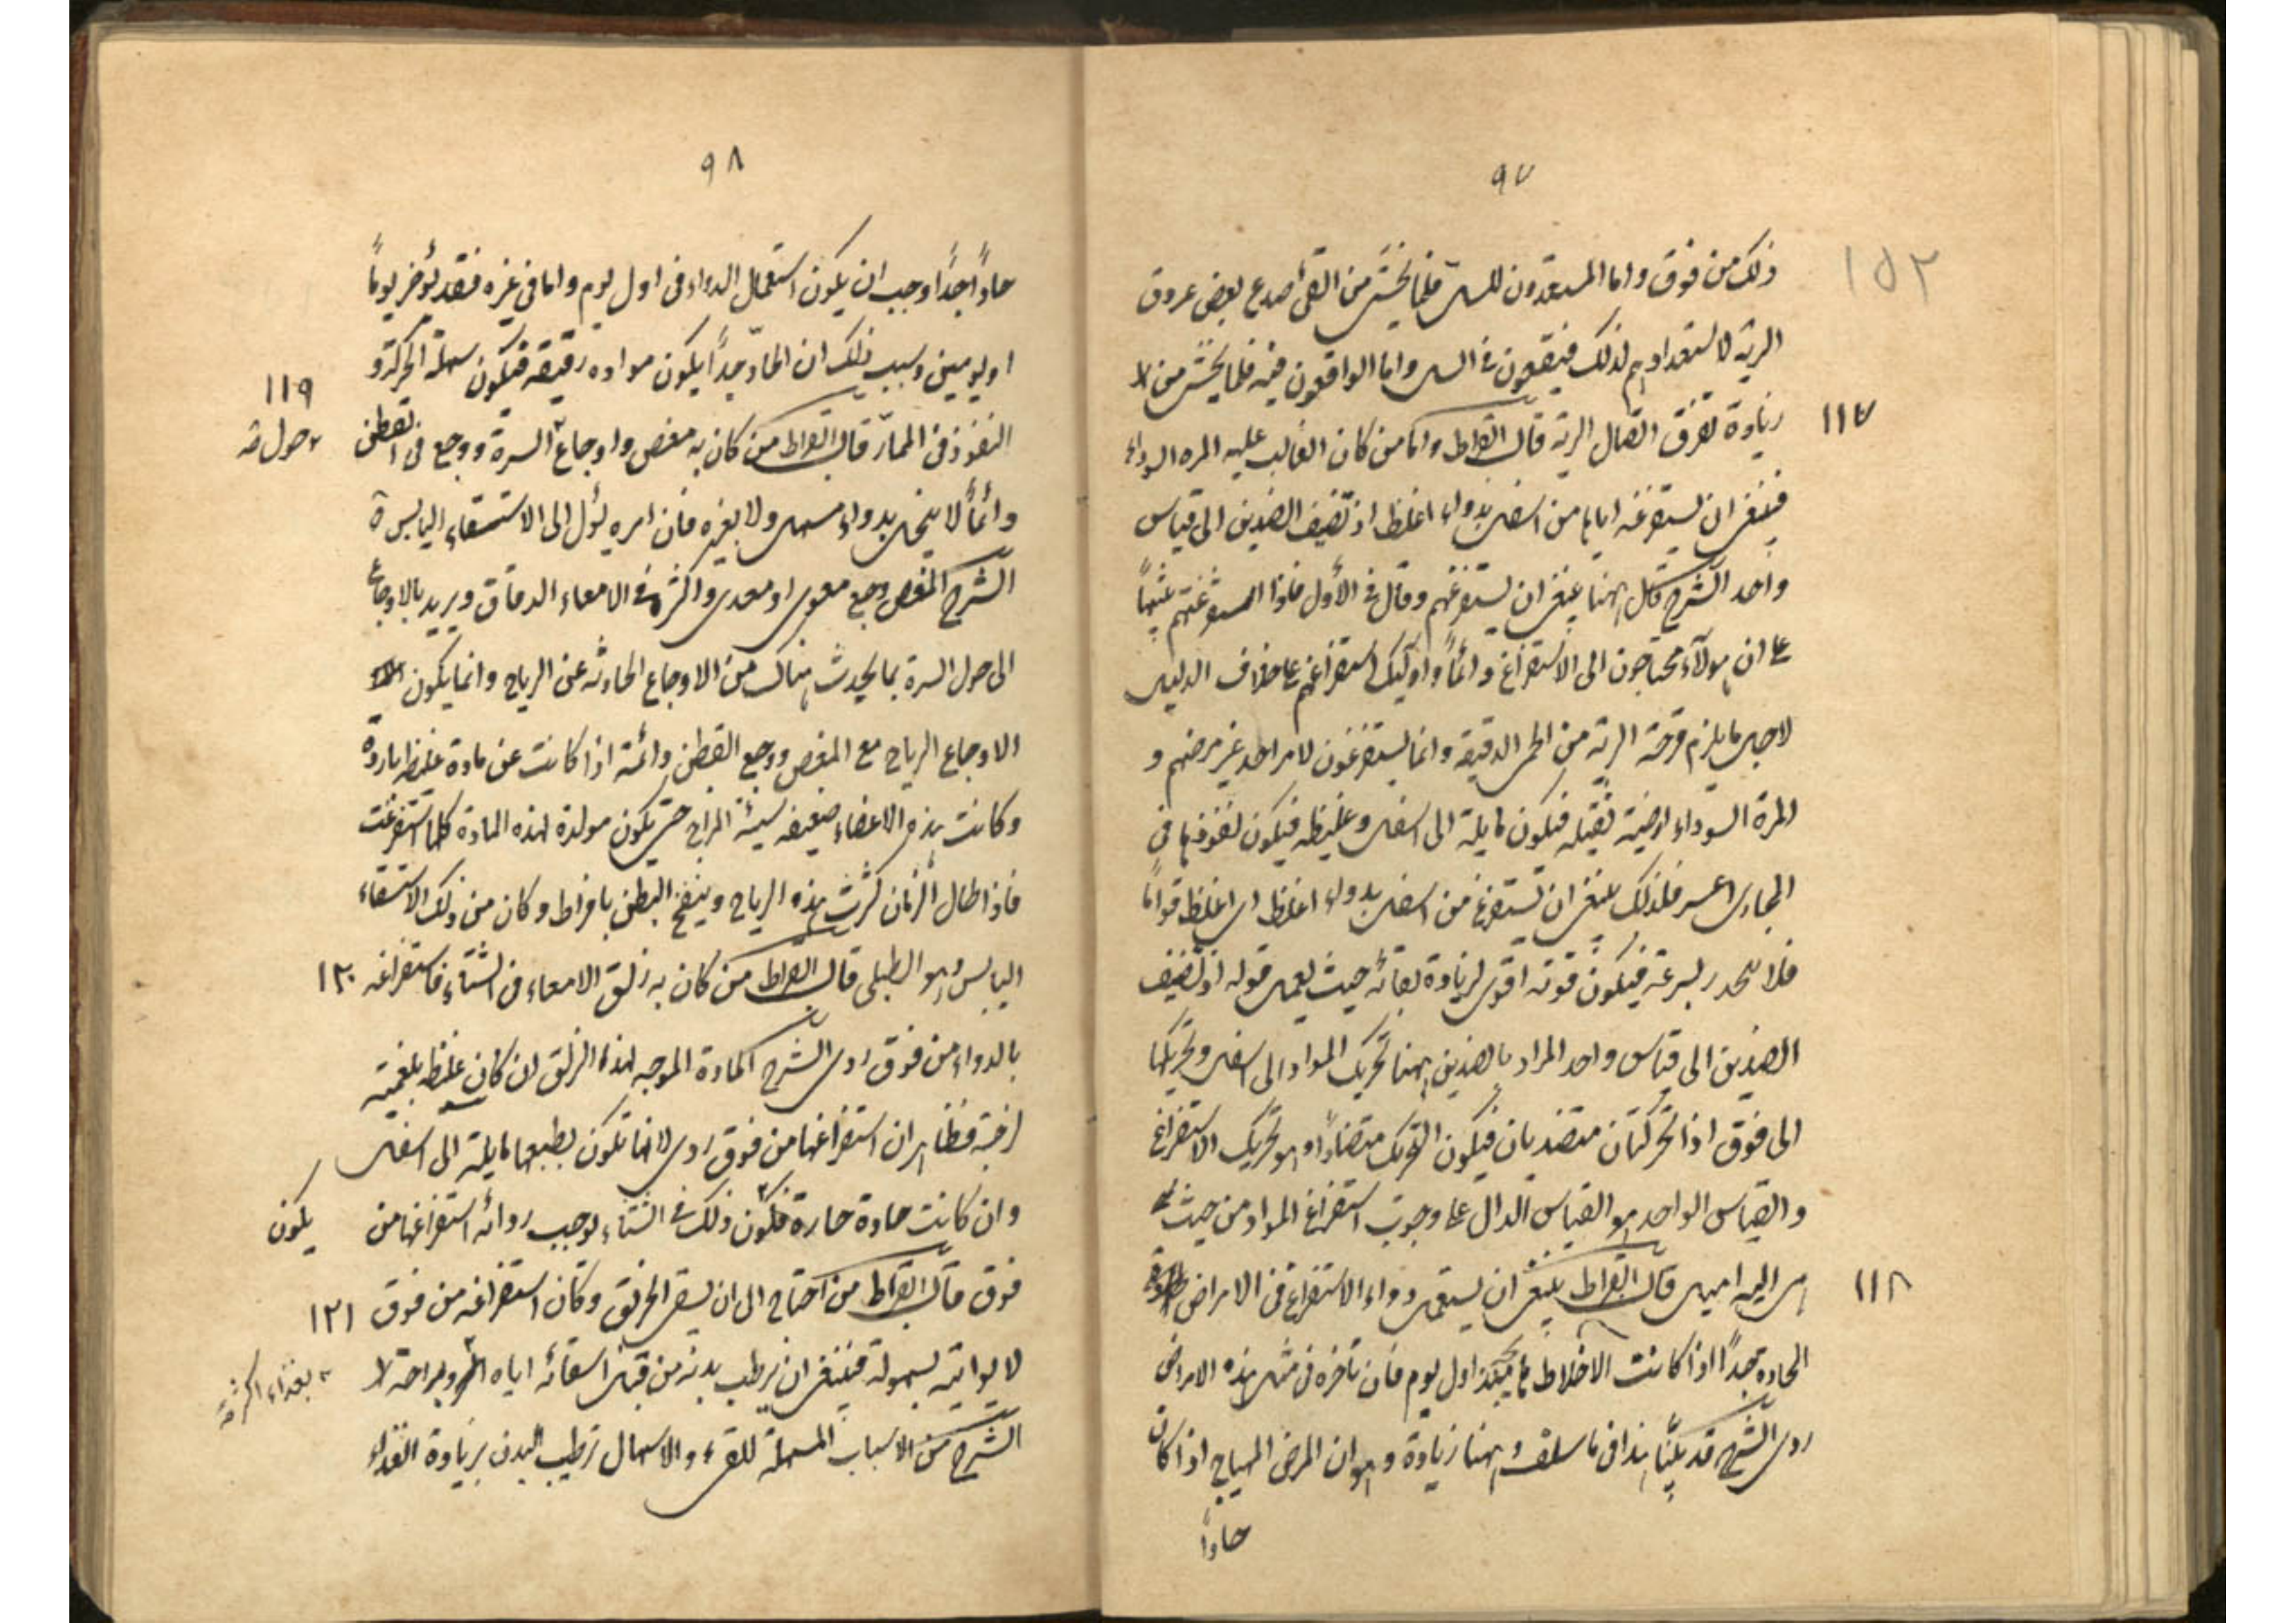 ٩٧
١٥٢
ذلك من فوق واما المستعدون للسل فلما يخشى من القئ أصدع بعض عروق
الرية لاستعدادهم لذلك فيقعون في السل واما الواقعون فيه فلما يخشى من
زيادة تفرق اتصال الرية قال ابقراط واما من كان الغالب عليه المره السوداء
١١٧
فينبغى ان يستفرغه اياها من اسفل بدواء اغلظ اذ تضيف الضدين الى قياس
واحد الشرح قيل ههنا ينبغى ان يستفرغهم وقال في الأول فاذا استفرغتم
على ان هولآء محتاجون الى الاستفراغ دائماً واولئك استفراغهم على خلاف الدليل
لاجل ما يلزم قرحة الرية من الحمى الدقيقة وانما يستفرغون لامر احد غير مرضهم و
المرة السوداء ارضية ثقيله فيكون مايلة الى اسفل وغليظه فيكون نفوذها في
المجارى اعسر فلذلك ينبغى ان تستفرغ من اسفل بدواء اغلظ اى اغلظ قواماً
فلا ينحدر بسرعة فيكون قوته اقوى لزيادة بقائه حيث يعمل قوله اذ تضيف
الضدين الى قياس واحد المراد بالضدين ههنا تحريك المواد الى اسفل وتحريكها
الى فوق اذ الحركتان متضديان فيكون التحريك متضاداً وهو تحريك الاستفراغ
والقياس الواحد هو القياس الدال على وجوب استفراغ المواد من حيث
هى اليه اميل قال ابقراط ينبغى ان يستعمل دواء الاستفراغ في الامراض
١١٨
الحاده جداً اذا كانت الاخلاط هايجة منذ اول يوم فان تأخره في مثل هذه الامراض
ردى الشرح قد بيّنّا هذا فى ما سلف وههنا زيادة وهو ان المرض المهياج اذا كان
حاداً
٩٨
حاداً جداً وجب ان يكون استعمال الدواء فى اول يوم واما فى غيره فقد يؤخر يوماً
او يومين وسبب ذلك ان الحادّ جداً يكون مواده رقيقه فيكون سهلة الحركة و
النفوذ فى الممارّ قال ابقراط من كان به مغص واوجاع السرة ووجع فى القطن
١١٩
حول صه
دائماً لا ينحل بدواء مسهل ولا بغيره فان امره يؤل الى الاستسقاء اليابس
الشرح المغص وجع معوى او معدى واكثره فى الامعاء الدقاق ويريد بالاوجاع
الى حول السرة بما يحدث هناك من الاوجاع الحادثه عن الرياح وانما يكون
الاوجاع الرياح مع المغص ووجع القطن دائمة اذا كانت عن مادة غليظه باردة
وكانت هذه الاعضاء ضعيفه سيئة المزاج حتى يكون مولدة لهذه المادة كلما استفرغت
فاذا طال الزمان كثرت هذه الرياح وينفخ البطن بافراط وكان من ذلك الاستسقاء
اليابس وهو الطبلى قال ابقراط من كان به زلق الامعاء فى الشتاء فاستفراغه
١٢٠
بالدواء من فوق ردى الشرح المادة الموجبه لهذا الزلق ان كان غليظه بلغمية
لزجة فظاهر ان استفراغها من فوق ردى لانها تكون بطبعها مايلة الى اسفل
وان كانت حادة حارة فيكون ذلك فى الشتاء لوجب رداءة استفراغها من
يكون
فوق قال ابقراط من احتاج الى ان يسقى الخربق وكان استفراغه من فوق
١٢١
لا يواتيه بسهولة فينبغى ان يرطب بدنه من قبل اسقائه اياه وبراحة
بغذاء اكثر صه
الشرح من الاسباب المسهلة للقىء والاسهال ترطيب البدن بزيادة الغذاء